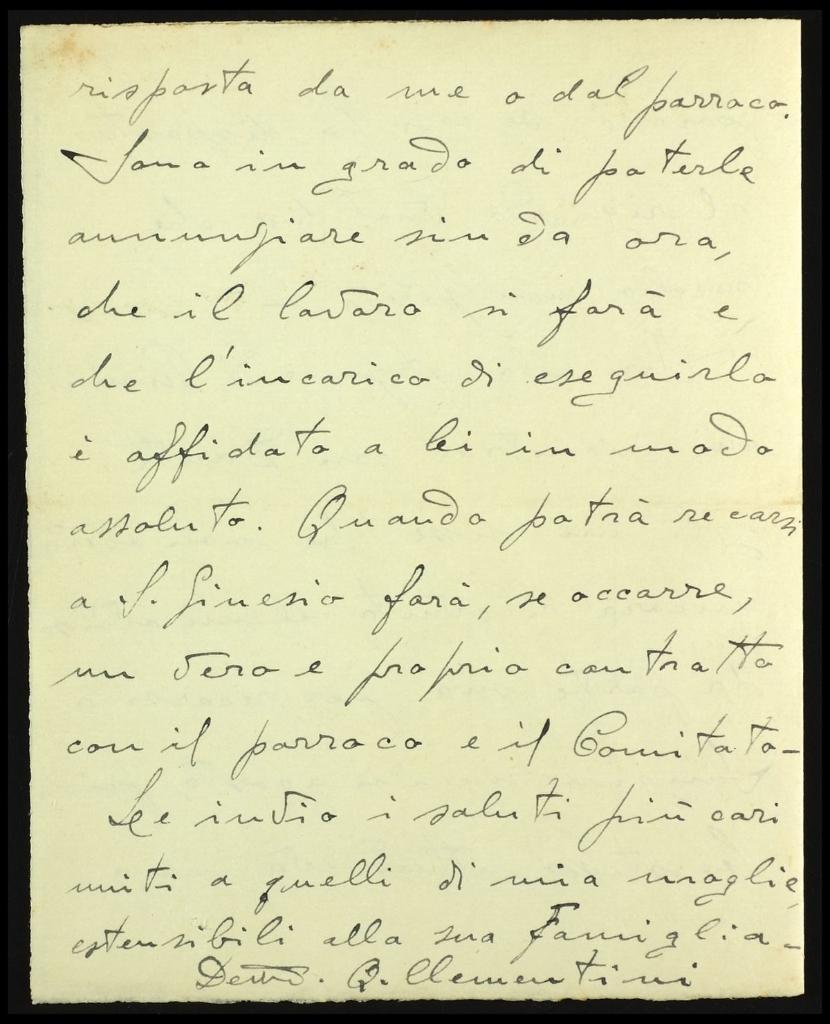 risposta da me o dal parroco.
Sono in grado di poterle
annunziare sin da ora,
che il lavoro si farà e
che l'incarico di eseguirlo
è affidato a lei in modo
assoluto. Quando potrà recarsi
a S. Ginesio farà, se occorre,
un vero e proprio contratto
con il parroco e il Comitato -
Le invio i saluti più cari
uniti a quelli di mia moglie,
estensibili alla sua Famiglia -
Q. Clementini